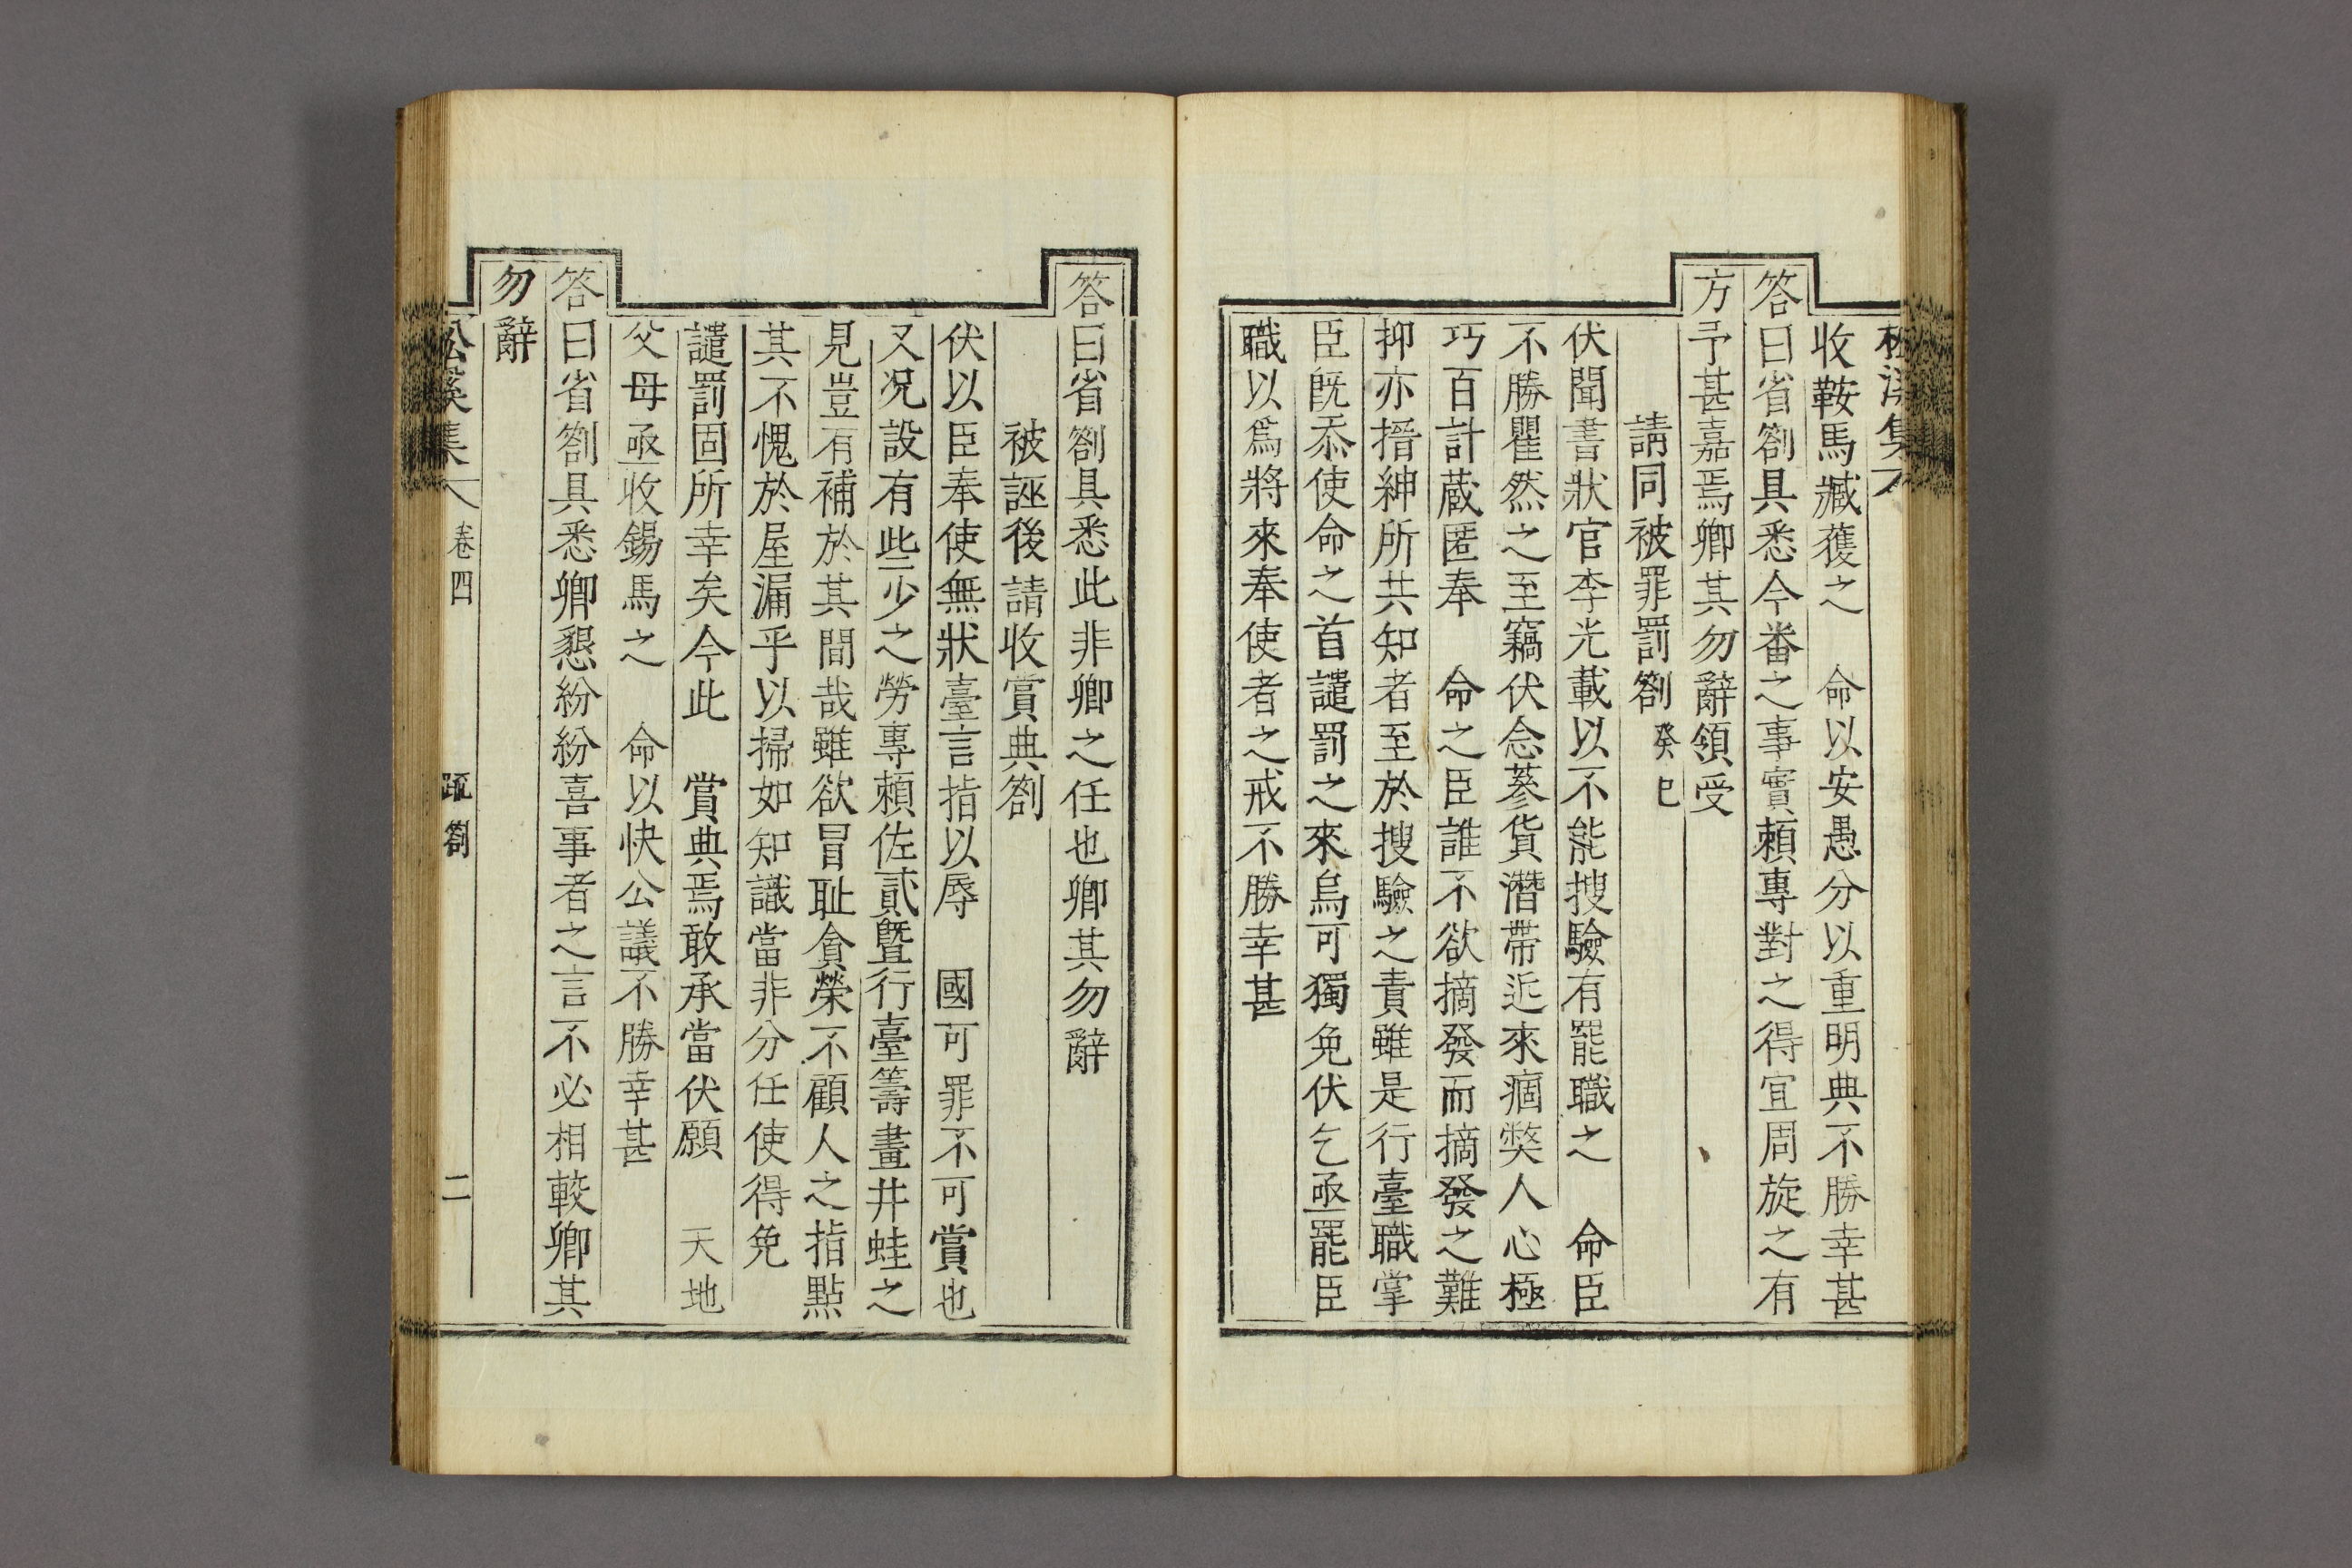 收鞍馬臧獲之　命以安愚分以重明典不勝幸甚
答曰省劄具悉今番之事實賴專對之得宜周旋之有
方予甚嘉焉卿其勿辭領受
請同被罪罰劄癸巳
伏聞書狀官李光載以不能搜驗有罷職之　命臣
不勝瞿然之至竊伏念蔘貨潛帶近來痼獘人心極
巧百計蔵匿奉　命之臣誰不欲摘發而摘發之難
抑亦搢紳所共知者至於搜驗之責雖是行臺職掌
臣旣忝使命之首譴罰之來烏可獨免伏乞亟罷臣
職以爲將來奉使者之戒不勝幸甚
答曰省劄具悉此非卿之任也卿其勿辭
被誣後請收賞典劄
伏以臣奉使無狀臺言指以辱　國可罪不可賞也
又况設有些少之勞專賴佐貳曁行臺籌畫井蛙之
見豈有補於其間哉雖欲冒耻貪榮不顧人之指點
其不愧於屋漏乎以掃如知識當非分任使得免
譴罰固所幸矣今此　賞典焉敢承當伏願　天地
父母亟收錫馬之　命以快公議不勝幸甚
答曰省劄具悉卿懇紛紛喜事者之言不必相較卿其
勿辭
松溪集　卷四　疏劄　二